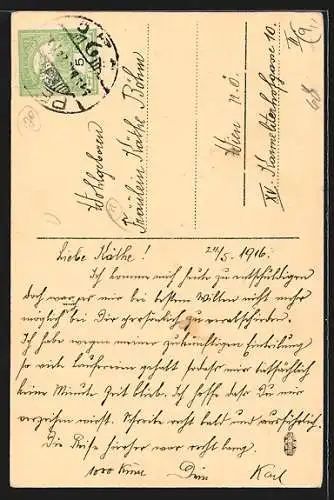 Wohlgeboren
Fräulein Käthe Böhm
Wien n.ö.
XV. Karmeliterhofgasse 10.
Liebe Käthe! 24/5. 1916.
Ich komme mich heute zu entschuldigen
doch war es mir bei bestem Willen nicht mehr
möglich bei Dir persönlich zu verabschieden.
Ich habe wegen meiner zukünftigen Einteilung
so viele Laufereien gehabt sodaß mir tatsächlich
keine Minute Zeit blieb. Ich hoffe daß Du mir
verzeihen wirst. Schreibe recht bald und ausführlich.
Die Reise hierher war recht lang.
1000 Küsse Dein Karl